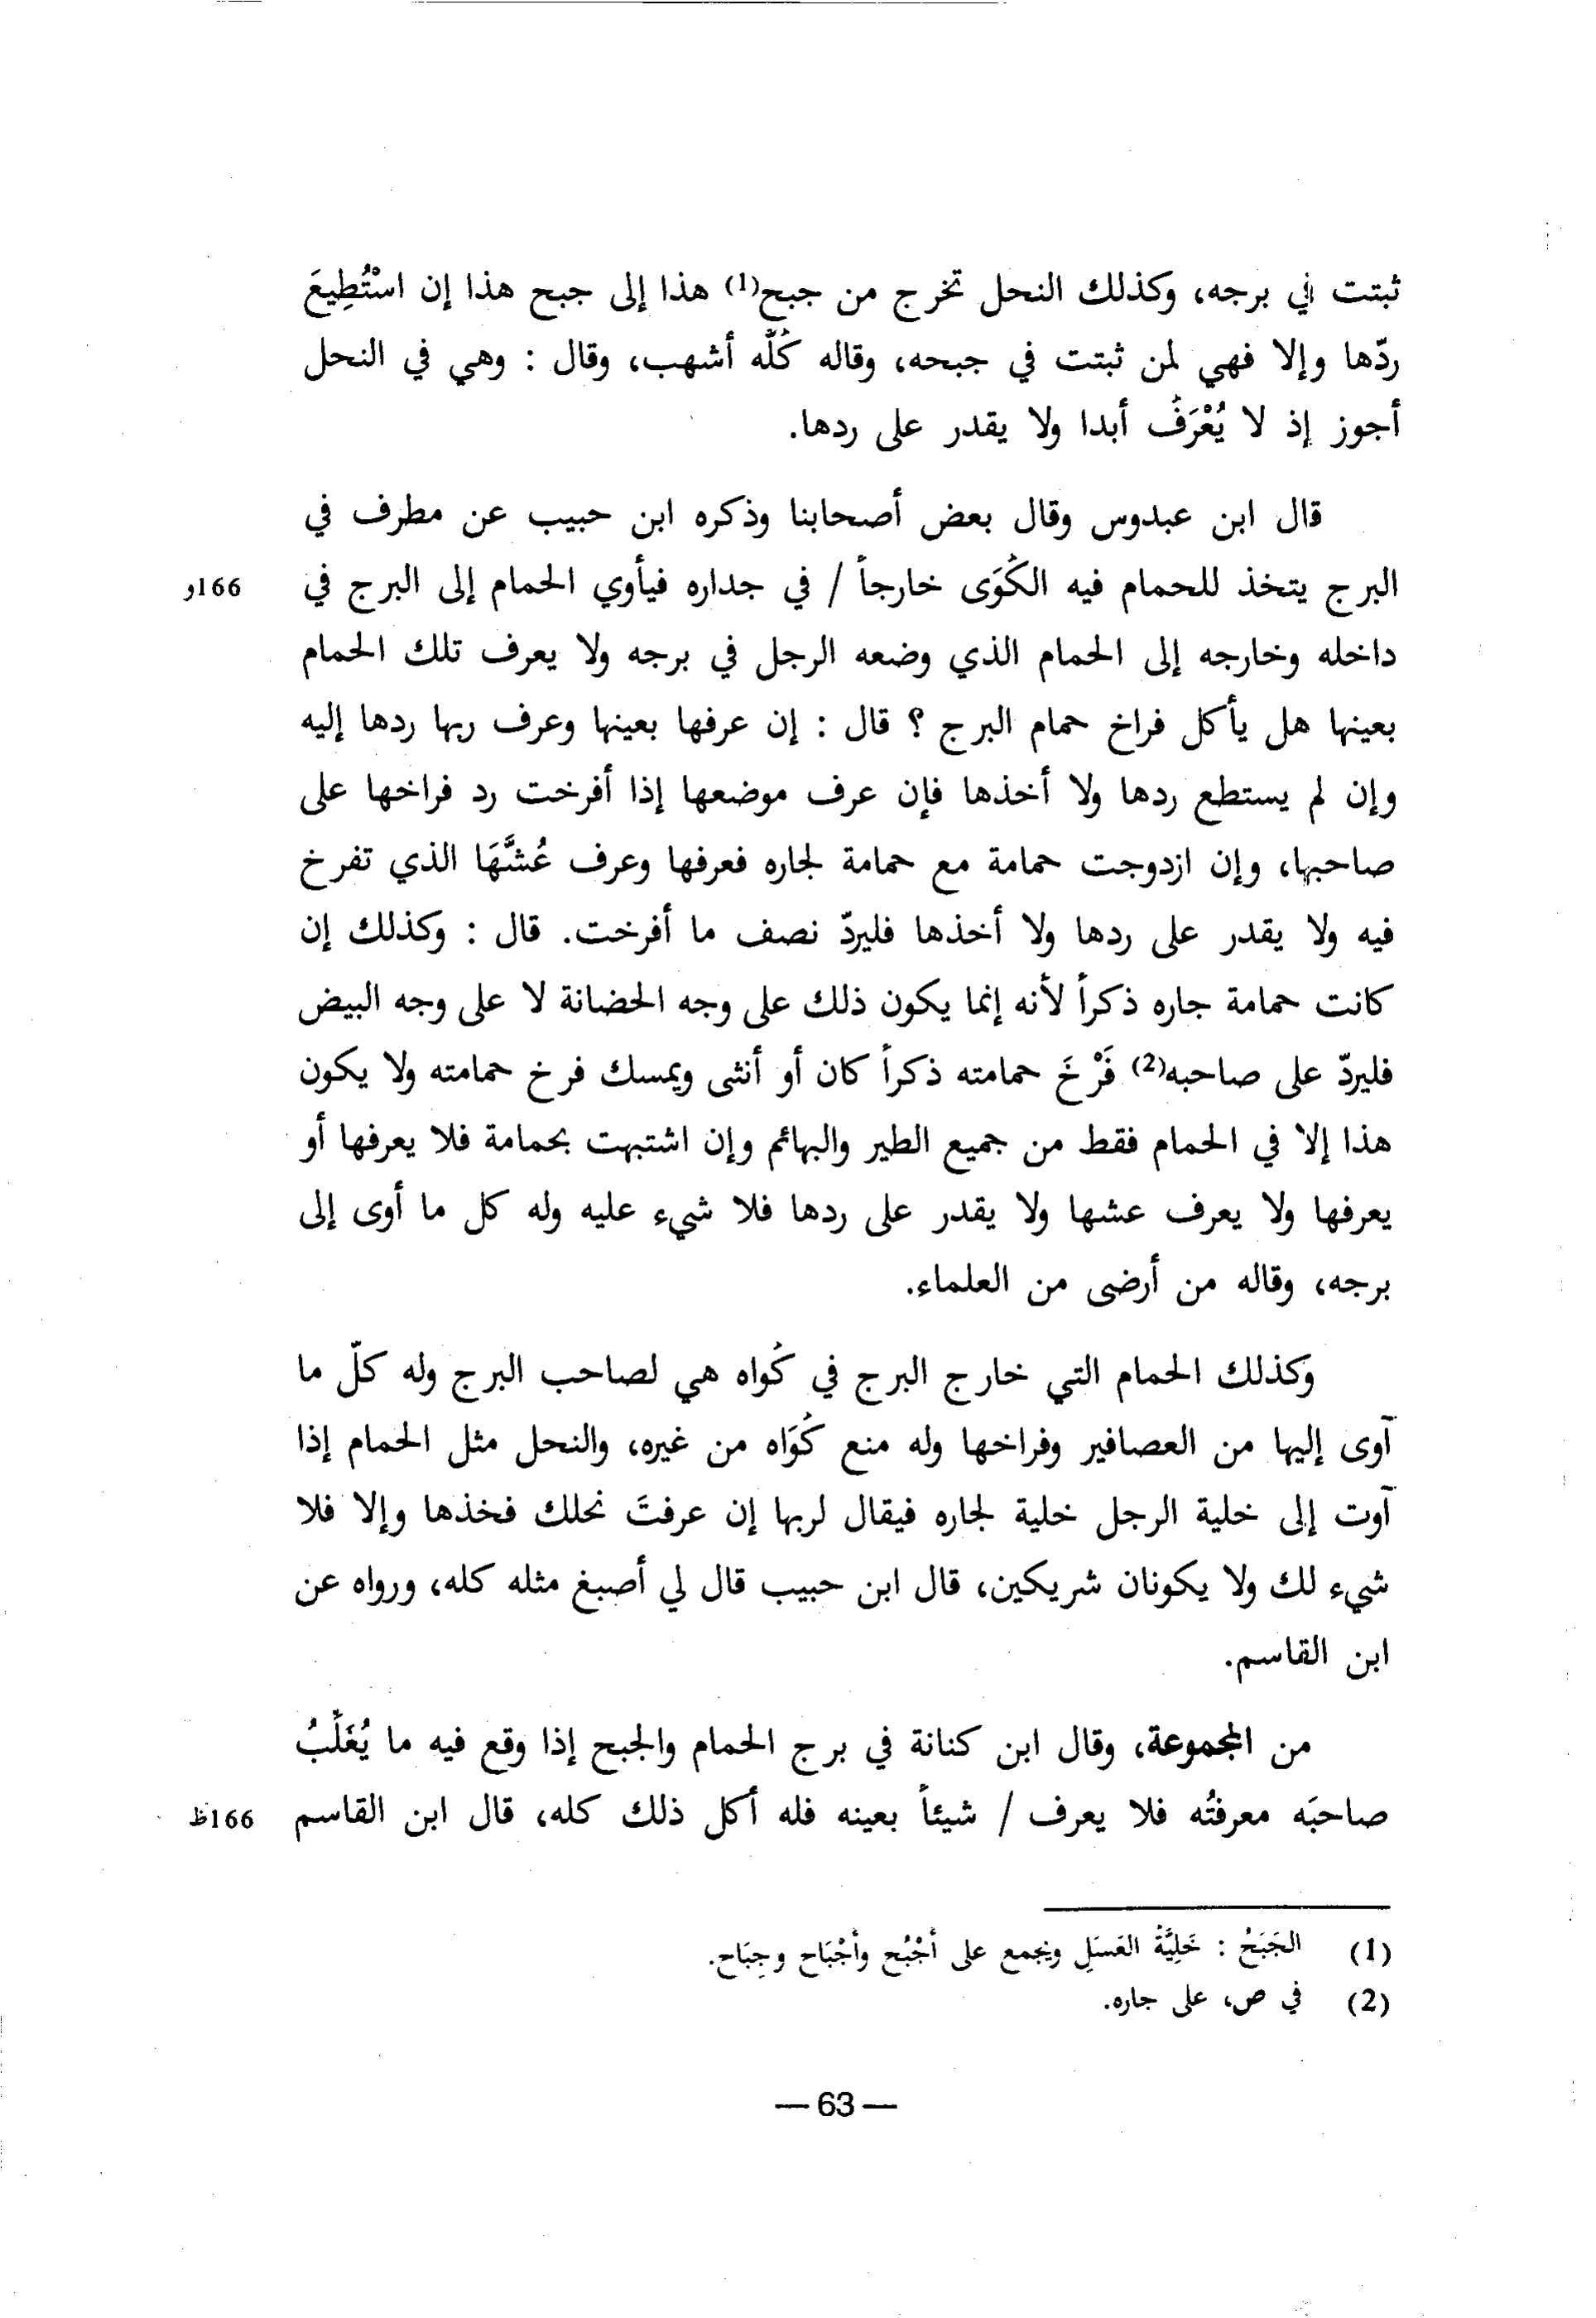 ثبتت في برجه، وكذلك النحل تخرج من جبح(1) هذا إلى جبح هذا إن اسْتُطِيعَ
ردّها وإلا فهي لمن ثبتت في جبحه، وقاله كُلَّه أشهب، وقال : وهي في النحل
أجوز إذ لا يُعْرَفُ أبدا ولا يقدر على ردها.
قال ابن عبدوس وقال بعض أصحابنا وذكره ابن حبيب عن مطرف في
البرج يتخذ للحمام فيه الكُوَى خارجاً / في جداره فيأوي الحمام إلى البرج في 166و
داخله وخارجه إلى الحمام الذي وضعه الرجل في برجه ولا يعرف تلك الحمام
بعينها هل يأكل فراخ حمام البرج ؟ قال : إن عرفها بعينها وعرف ربها ردها إليه
وإن لم يستطع ردها ولا أخذها فإن عرف موضعها إذا أفرخت رد فراخها على
صاحبها، وإن ازدوجت حمامة مع حمامة لجاره فعرفها وعرف عُشَّهَا الذي تفرخ
فيه ولا يقدر على ردها ولا أخذها فليردّ نصف ما أفرخت. قال : وكذلك إن
كانت حمامة جاره ذكراً لأنه إنما يكون ذلك على وجه الحضانة لا على وجه البيض
فليردّ على صاحبه(2) فَرْخَ حمامته ذكراً كان أو أنثى ويمسك فرخ حمامته ولا يكون
هذا إلا في الحمام فقط من جميع الطير والبهائم وإن اشتبهت بحمامة فلا يعرفها أو
يعرفها ولا يعرف عشها ولا يقدر على ردها فلا شيء عليه وله كل ما أوى إلى
برجه، وقاله من أرضى من العلماء.
وكذلك الحمام التي خارج البرج في كُواه هي لصاحب البرج وله كلّ ما
آوى إليها من العصافير وفراخها وله منع كُوَاه من غيره، والنحل مثل الحمام إذا
آوت إلى خلية الرجل خلية لجاره فيقال لربها إن عرفتَ نحلك فخذها وإلا فلا
شيء لك ولا يكونان شريكين، قال ابن حبيب قال لي أصبغ مثله كله، ورواه عن
ابن القاسم.
من المجموعة، وقال ابن كنانة في برج الحمام والجبح إذا وقع فيه ما يُغَلِّبُ
صاحبَه معرفتُه فلا يعرف / شيئاً بعينه فله أكل ذلك كله، قال ابن القاسم 166ظ
(1) الجَبَحُ : خَلِيَّةُ العَسَلِ ويجمع على أجْبُح وأجْبَاح وجِبَاح.
(2) في ص، على جاره.
— 63 —